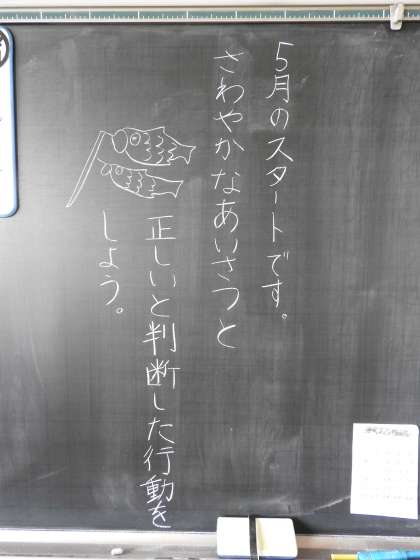 5月のスタートです。
さわやかなあいさつと
正しいと判断した行動を
しよう。